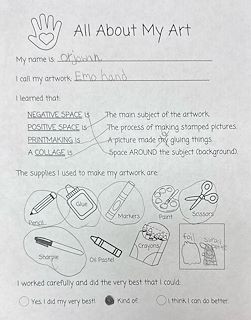 All About My Art
My name is
I call my artwork Emo hand
I learned that:
NEGATIVE SPACE is The main subject of the artwork.
POSITIVE SPACE is The process of making stamped pictures.
PRINTMAKING is A picture made by gluing things.
A COLLAGE is Space AROUND the subject (background).
The supplies I used to make my artwork are:
Pencil Glue Markers Paint Scissors
Sharpie Oil Pastel Crayons foil
I worked carefully and did the very best that I could:
Yes, I did my very best! Kind of. I think I can do better.